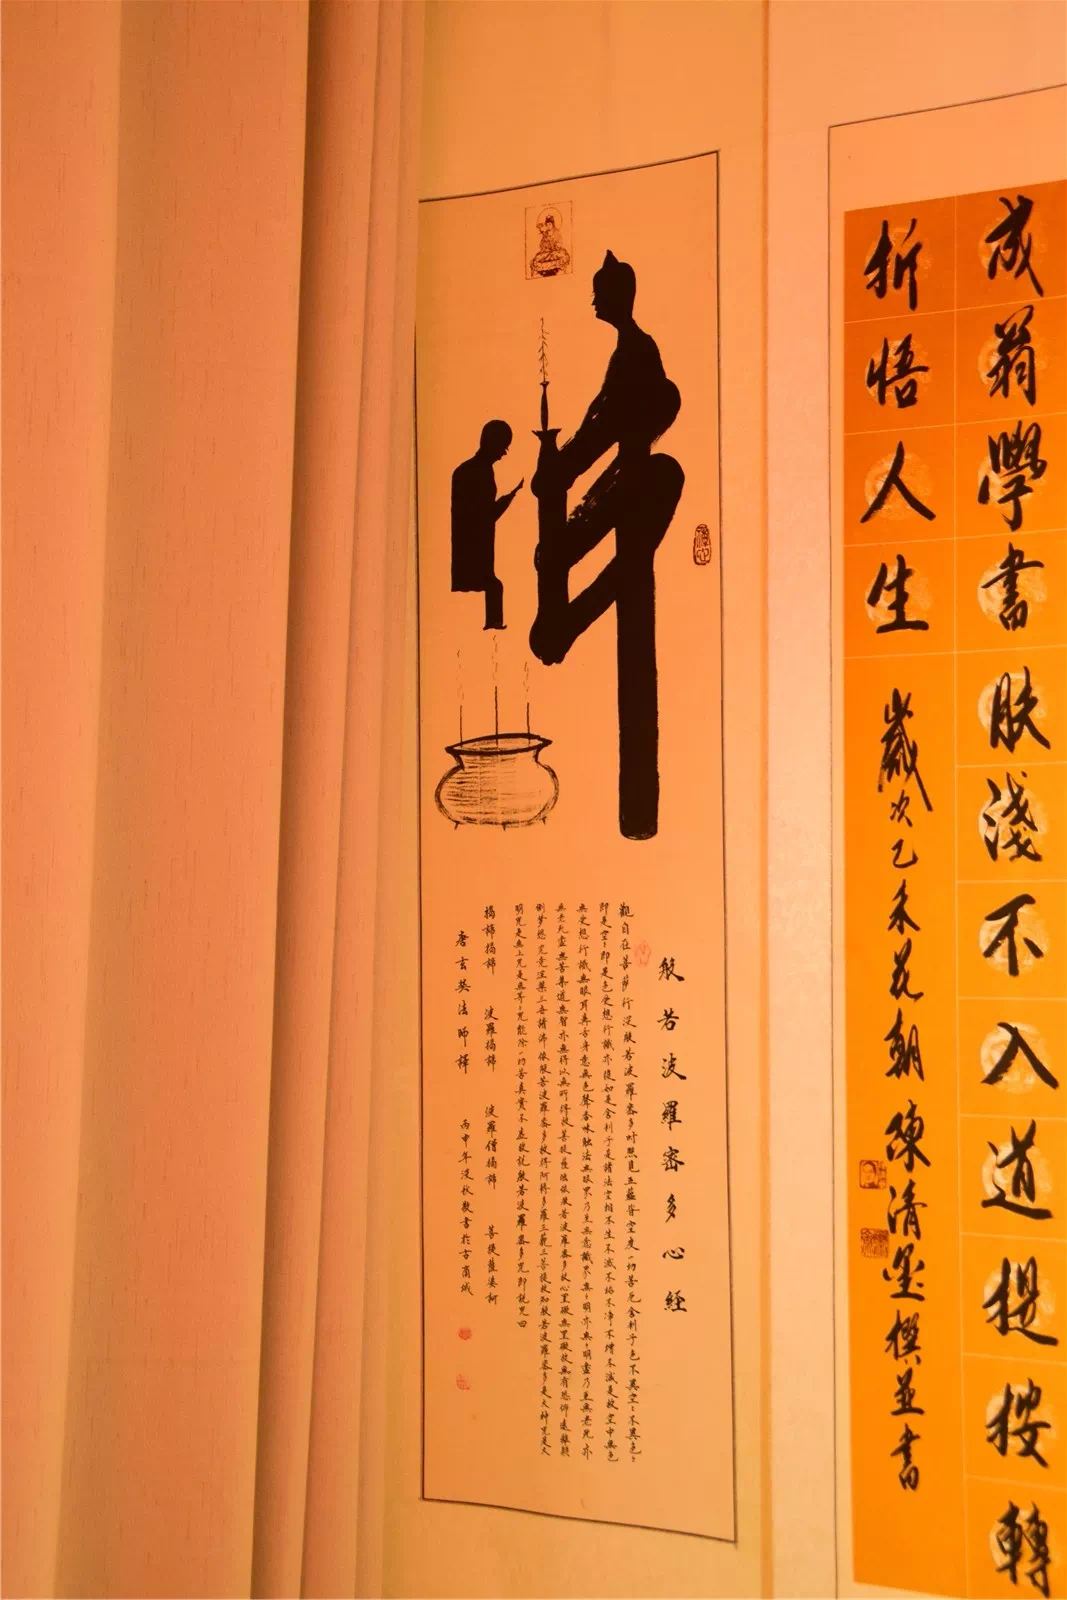 成翁學書肤淺不入道提按轉
折悟人生
歲次乙未花朝陳清墨撰並書
佛
般若波羅密多心經
觀自在菩薩行深般若波羅密多時照見五蘊皆空度一切苦厄舍利子色不異空〻不異色〻
即是空〻即是色受想行識亦復如是舍利子是諸法空相不生不滅不垢不淨不增不減是故空中無色
無受想行識無眼耳鼻舌身意無色聲香味触法無眼界乃至無意識界無〻明亦無〻明盡乃至無老死亦
無老死盡無苦集道無智亦無得以無所得故菩提薩埵依般若波羅密多故心罣礙無罣礙故無有恐怖遠離顛
倒梦想究竟涅槃三世諸佛依般若波羅密多故得阿耨多羅三藐三菩提故知般若波羅密多是大神咒是大
明咒是無上咒是無等〻咒能除一切苦真實不虛故說般若波羅密多咒即說咒曰
揭諦揭諦 波羅揭諦 波羅僧揭諦 菩提薩婆訶
唐玄奘法師譯 丙申年深秋敬書於古商城